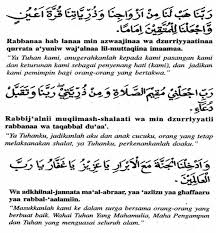 رَبَّنَا هَبْ لَنَا مِنْ أَزْوَاجِنَا وَذُرِّيَّاتِنَا قُرَّةَ أَعْيُنٍ
وَاجْعَلْنَا لِلْمُتَّقِينَ إِمَامًا.
Rabbanaa hab lanaa min azwaajinaa wa dzurriyyaatinaa
qurrata a'yuniw waj'alnaa lil-muttaqiina imaamaa.
"Ya Tuhan kami, anugerahkanlah kepada kami pasangan kami
dan keturunan kami sebagai penyenang hati (kami), dan jadikan
kami pemimpin bagi orang-orang yang bertakwa."
رَبِّ اجْعَلْنِي مُقِيْمَ الصَّلَاةِ وَ مِنْ ذُرِّيَّتِيْ رَبَّنَا وَتَقَبَّلْ
دُعَاءِ.
Rabbij'alnii muqiimash-shalaati wa min dzurriyyatii
rabbanaa wa taqabbal du'aa'.
"Ya Tuhanku, jadikanlah aku dan anak cucuku, orang yang tetap
melaksanakan shalat, ya Tuhanku, perkenankanlah doaku."
وَأَدْخِلْنَا الْجَنَّةَ مَعَ الْأَبْرَارِ يَا عَزِيْزُ يَا غَفَّارُ يَا رَبَّ
الْعَالَمِيْنَ.
Wa adkhilnal-jannata ma'al-abraar, yaa 'aziizu yaa ghaffaaru
yaa rabbal-'aalamiin.
"Masukkanlah kami ke dalam surga bersama orang-orang yang
berbuat baik. Wahai Tuhan Yang Mahamulia, Maha Pengampun
dan Tuhan yang menguasai seluruh alam."